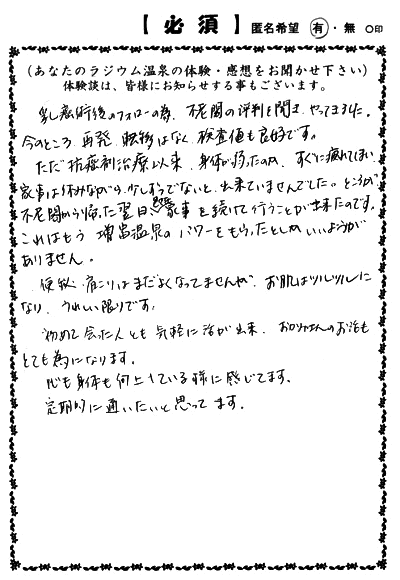 【 必 須 】 匿名希望 有・無 ○印
(あなたのラジウム温泉の体験・感想をお聞かせ下さい)
体験談は、皆様にお知らせする事もございます。
乳癌術後のフォローの為、不老閣の評判を聞き、やってきました。
今のところ、再発、転移はなく、検査値も良好です。
ただ抗癌剤治療以来、身体が弱ったのか、すぐに疲れてしまい
家事は休みながら少しずつでないと、出来ていませんでした。ところが
不老閣から帰った翌日、家事を続けて行うことが出来たのです。
これはもう増富温泉のパワーをもらったとしかいいようが
ありません。
便秘、肩こりはまだよくなってませんが、お肌はツルツルに
なり、うれしい限りです。
初めて会った人とも気軽に話が出来、お話も
とても為になります。
心も身体も向上している様に感じてます。
定期的に通いたいと思ってます。